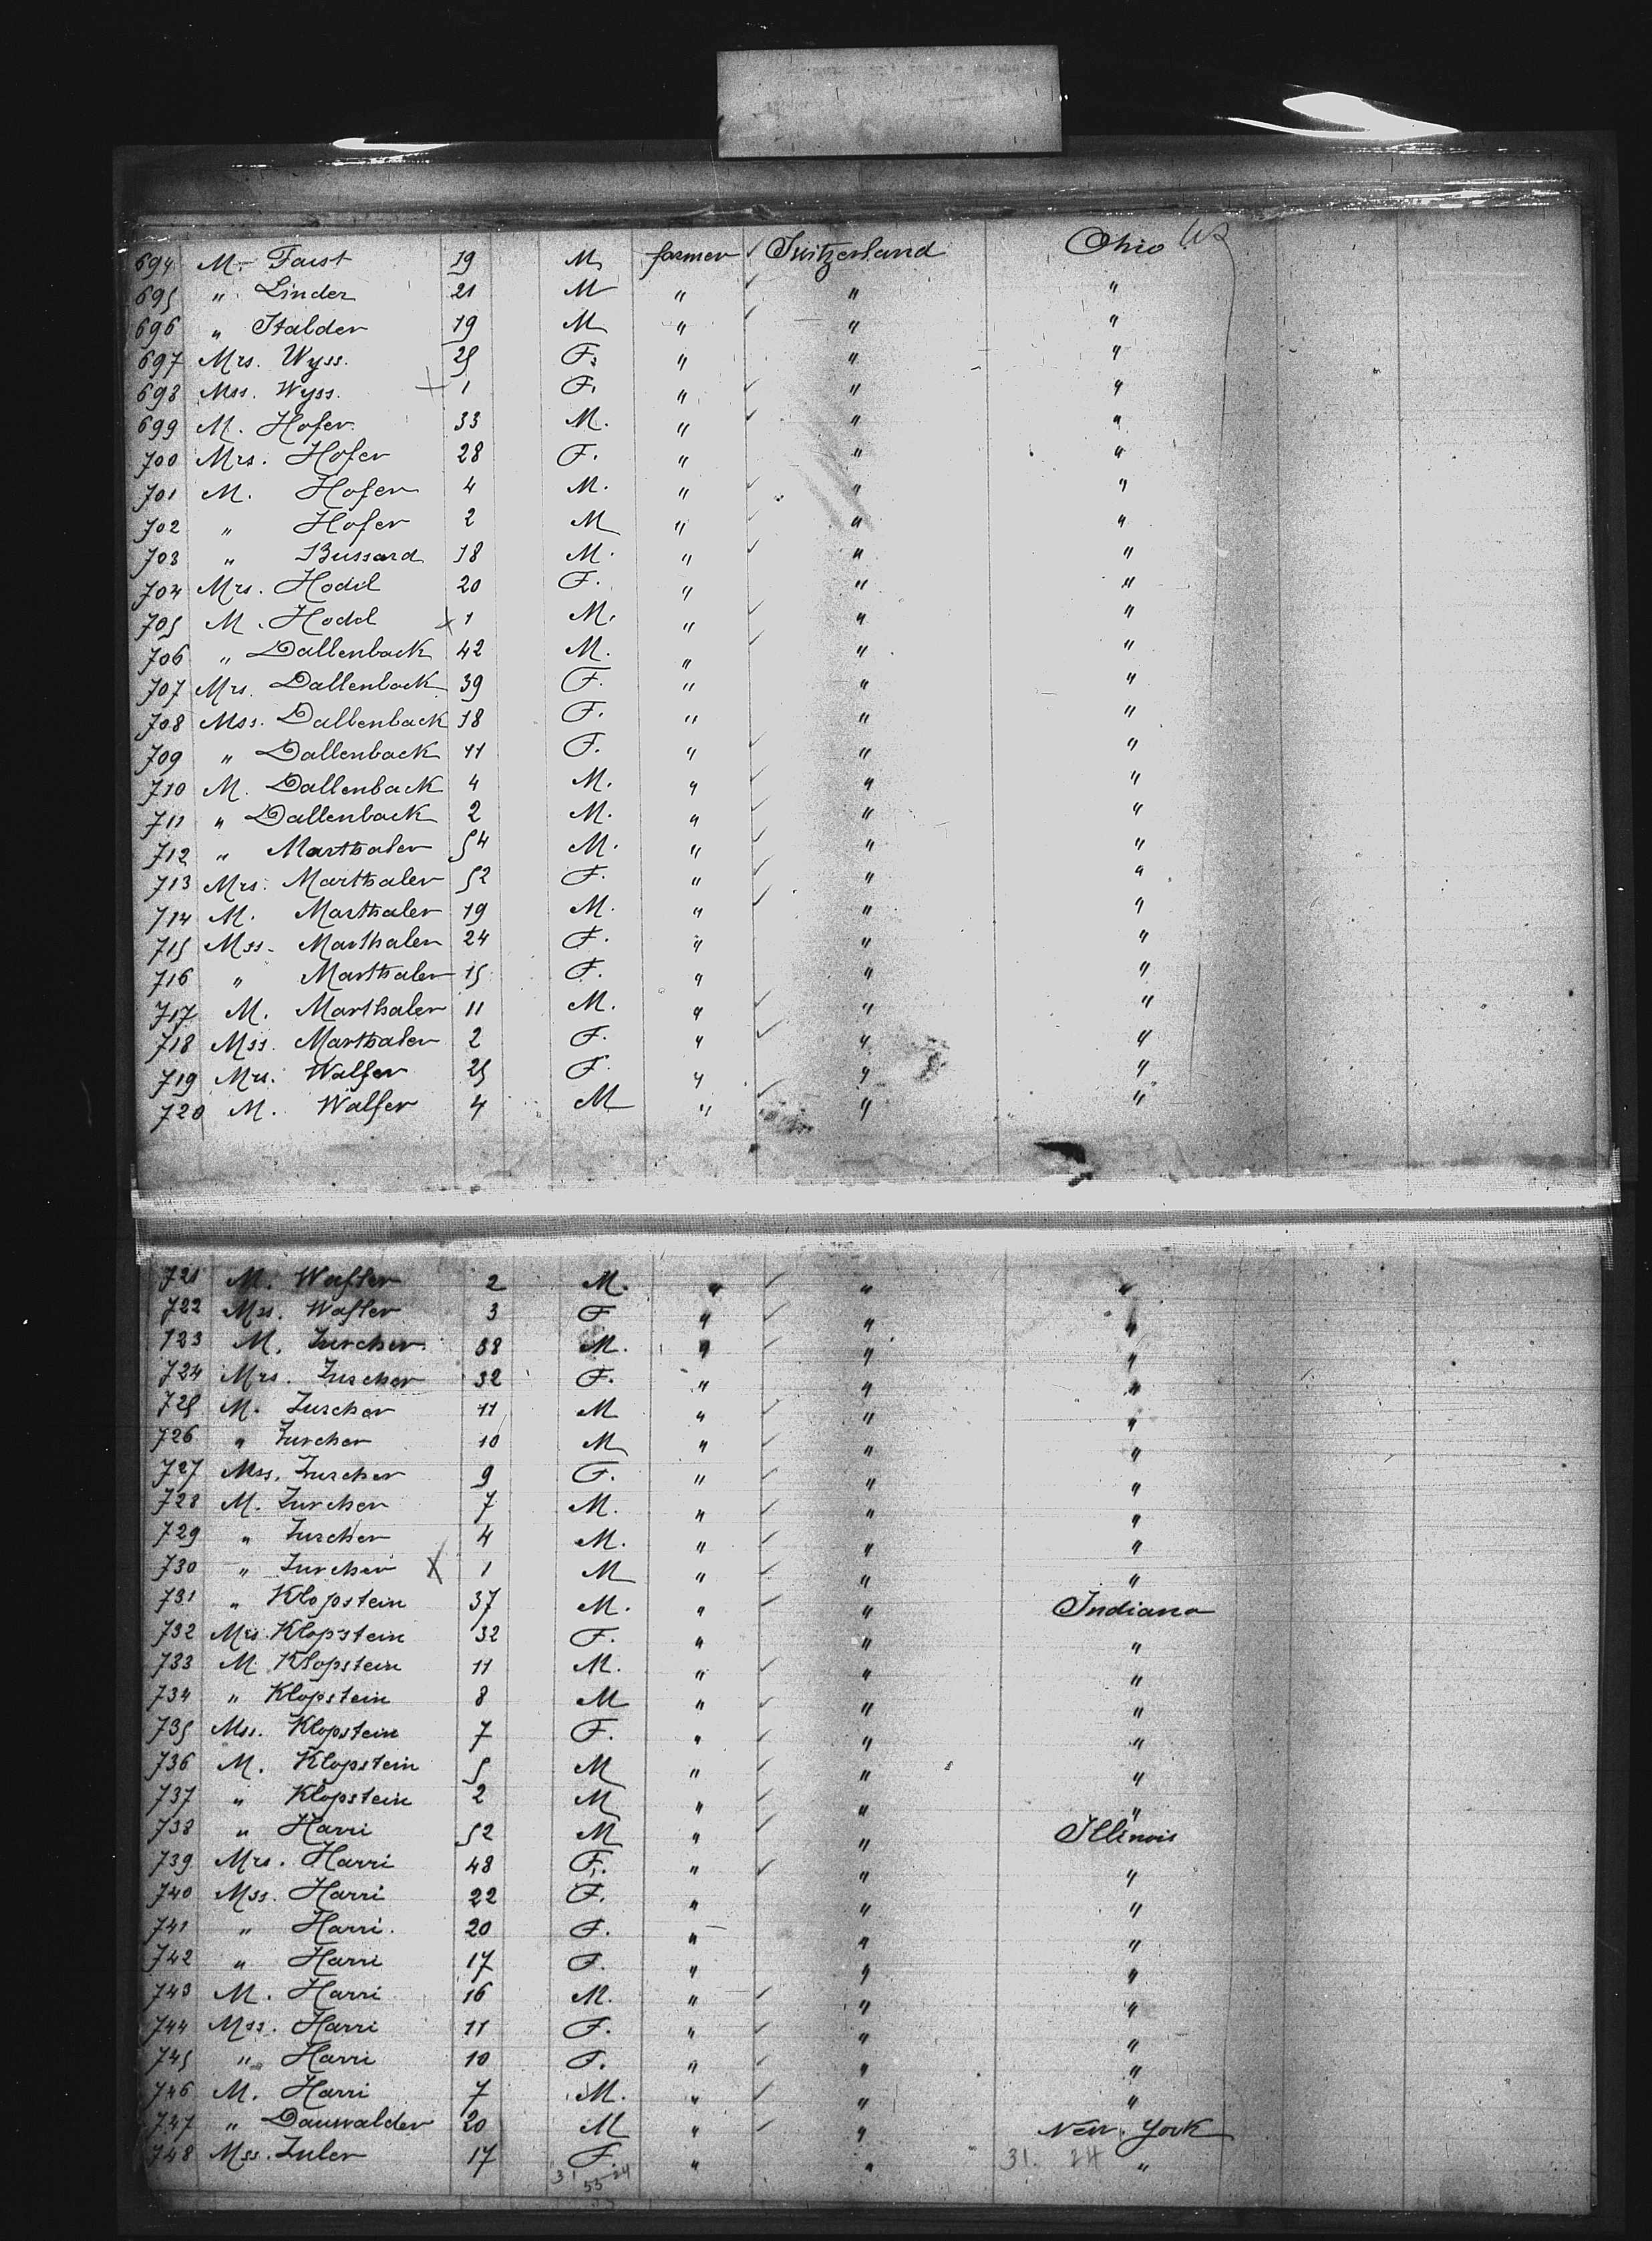 694 M. Faust 19 M. farmer ✓ Switzerland Ohio US
695 " Linder 21 M " ✓ " "
696 " Stalder 19 M " ✓ " "
697 Mrs. Wyss. 25 F. " " "
698 Mss. Wyss. + 1 F. " ✓ " "
699 M. Hofer. 33 M. " ✓ " "
700 Mrs. Hofer 28 F. " " "
701 M. Hofer 4 M. " ✓ " "
702 " Hofer 2 M " ✓ " "
703 " Bussard 18 M. " ✓ " "
704 Mrs. Hodel 20 F. " " "
705 M. Hodel x 1 M. " ✓ " "
706 " Dallenback 42 M. " ✓ " "
707 Mrs. Dallenback 39 F. " " "
708 Mss. Dallenback 18 F. " " "
709 " Dallenback 11 F. " ✓ " "
710 M. Dallenback 4 M. " ✓ " "
711 " Dallenback 2 M. " ✓ " "
712 " Marthaler 54 M. " ✓ " "
713 Mrs. Marthaler 52 F. " ✓ " "
714 M. Marthaler 19 M. " ✓ " "
715 Mss. Marthaler 24 F. " " "
716 " Marthaler 15 F. " " "
717 M. Marthaler 11 M. " ✓ " "
718 Mss. Marthaler 2 F. " ✓ " "
719 Mrs. Walfer 25 F. " " "
720 M. Walfer 4 M " ✓ " "
721 M. Wafler 2 M. " ✓ " "
722 Mss. Wafler 3 F " ✓ " "
723 M. Zurcher 38 M. " ✓ " "
724 Mrs. Zurcher 32 F. " " "
725 M. Zurcher 11 M " ✓ " "
726 " Zurcher 10 M " ✓ " "
727 Mss. Zurcher 9 F. " ✓ " "
728 M. Zurcher 7 M. " ✓ " "
729 " Zurcher 4 M. " ✓ " "
730 " Zurcher X 1 M " ✓ " "
731 " Klopstein 37 M. " ✓ " Indiana
732 Mrs. Klopstein 32 F. " " "
733 M Klopstein 11 M. " ✓ " "
734 " Klopstein 8 M " ✓ " "
735 Mss. Klopstein 7 F. " ✓ " "
736 M. Klopstein 5 M " ✓ " "
737 " Klopstein 2 M " ✓ " "
738 " Harri 52 M " ✓ " Illinois
739 Mrs. Harri 48 F. " ✓ " "
740 Mss. Harri 22 F. " " "
741 " Harri. 20 F. " " "
742 " Harri 17 F. " " "
743 M. Harri 16 M. " ✓ " "
744 Mss. Harri 11 F. " ✓ " "
745 " Harri 10 F. " ✓ " "
746 M. Harri 7 M. " ✓ " "
747 " Dauwalder 20 M " ✓ " New. York
748 Mss. Zuler 17 F. " " 31. 24 "
31 24
55